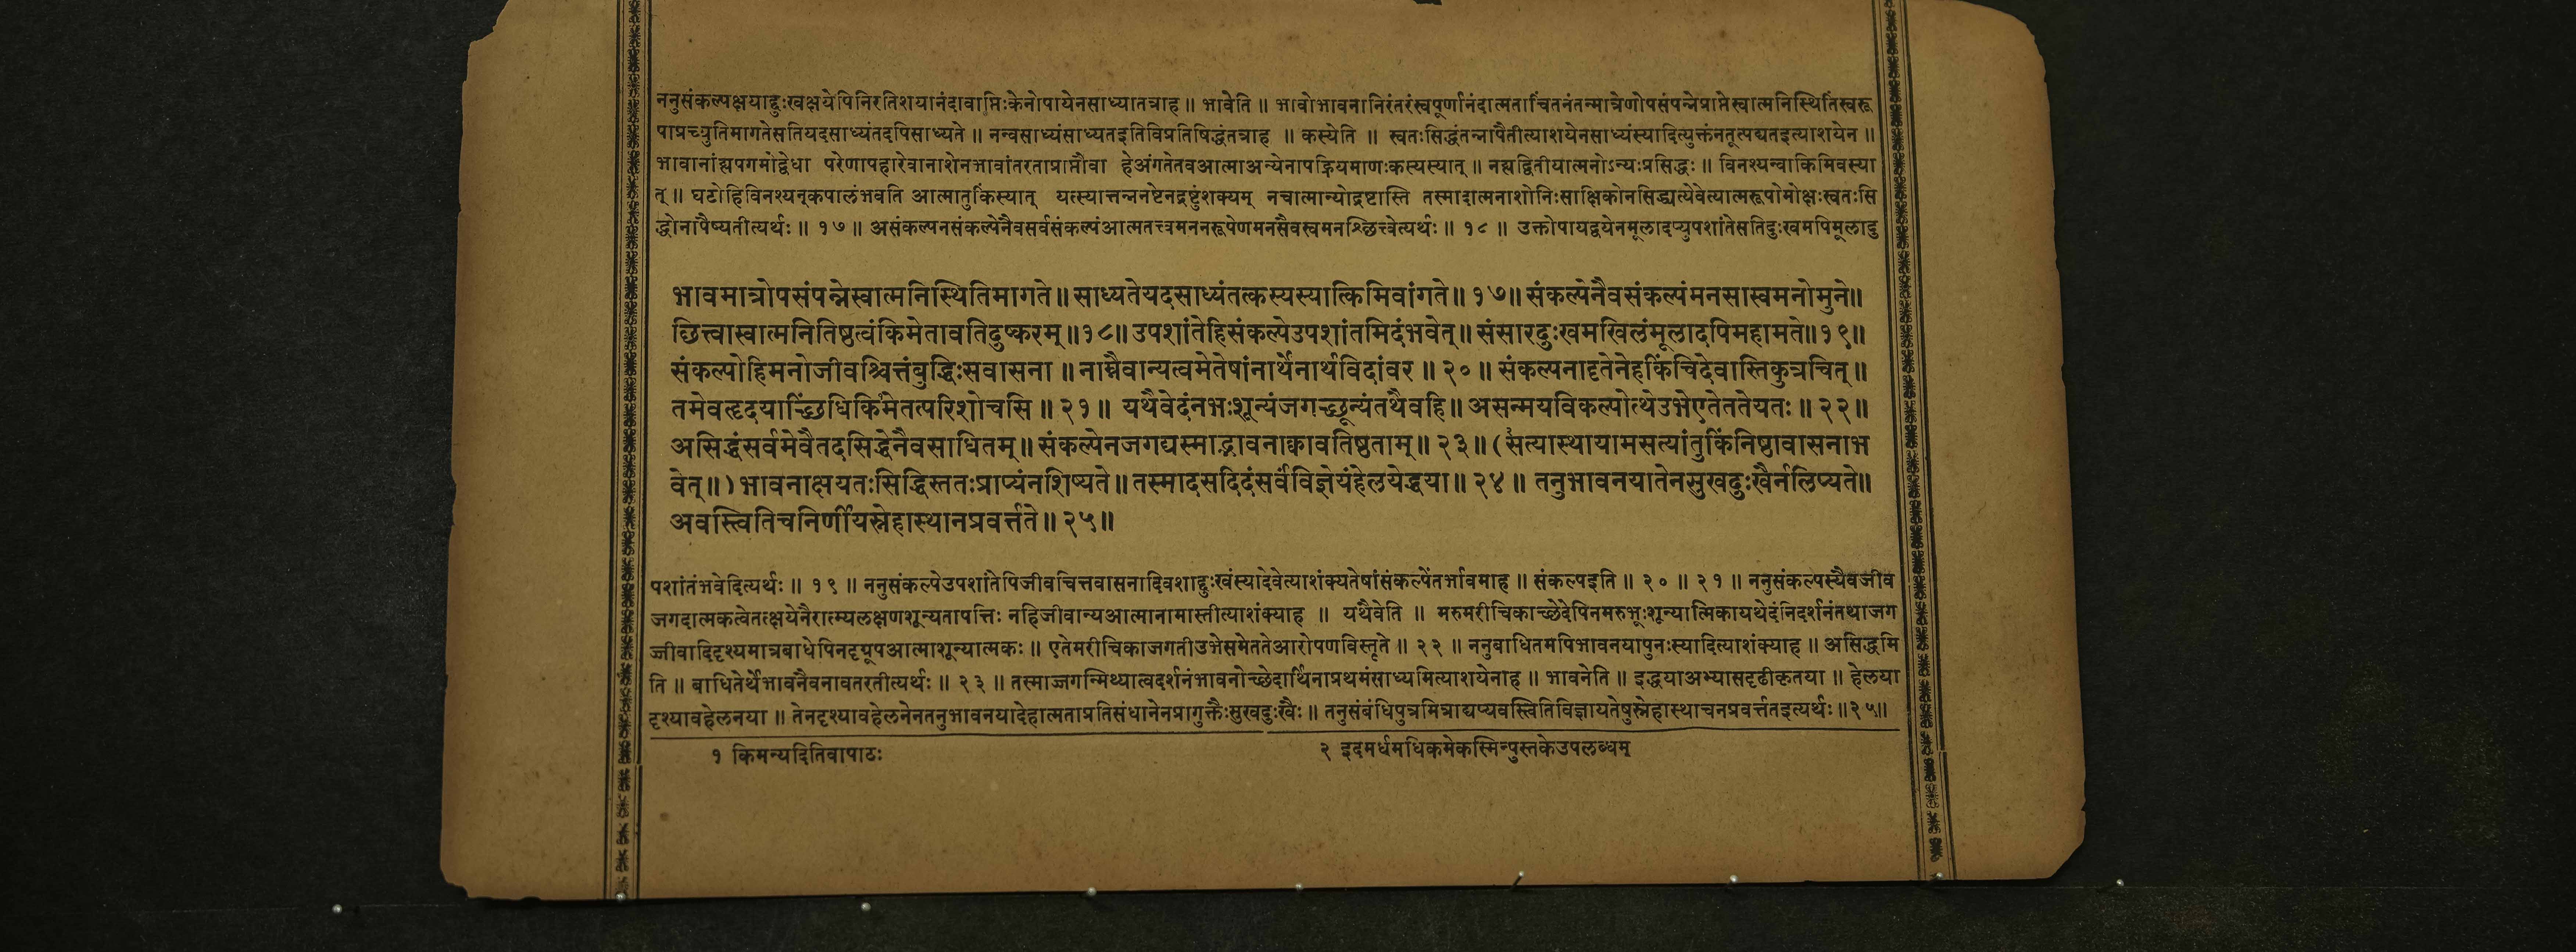 ननुसंकल्पक्षयाद्दुःखक्षयेपिनिरतिशयानंदावाप्तिःकेनोपायेनसाध्यातत्राह ॥ भावेति ॥ भावोभावनानिरंतरंस्वपूर्णानंदात्मताचिंतनंतन्मात्रेणोपसंपन्नेप्राप्तेस्वात्मनिस्थितिंस्वरू
पाप्रच्युतिमागतेसतियदसाध्यंतदपिसाध्यते ॥ नन्वसाध्यंसाध्यतइतिविप्रतिषिद्धंतत्राह ॥ कस्येति ॥ स्वतःसिद्धंतन्नापैतीत्याशयेनसाध्यंस्यादित्युक्तंनतूत्पद्यतइत्याशयेन ॥
भावानांह्यपगमोद्वेधा परेणापहारेवानाशेनभावांतरताप्राप्तौवा हेअंगतेतवआत्माअन्येनापह्रियमाणःकस्यस्यात् ॥ नह्यद्वितीयात्मनोऽन्यःप्रसिद्धः ॥ विनश्यन्वाकिमिवस्या
त् ॥ घटोहिविनश्यन्कपालंभवति आत्मातुकिंस्यात् यत्स्यात्तन्ननष्टेनद्रष्टुंशक्यम् नचात्मान्योद्रष्टास्ति तस्मादात्मनाशोनिःसाक्षिकोनसिद्ध्यत्येवेत्यात्मरूपोमोक्षःस्वतःसि
द्धोनापैष्यतीत्यर्थः ॥ १७ ॥ असंकल्पनसंकल्पेनैवसर्वसंकल्पंआत्मतत्त्वमननरूपेणमनसैवस्वमनश्छित्त्वेत्यर्थः ॥ १८ ॥ उक्तोपायद्वयेनमूलादप्युपशांतेसतिदुःखमपिमूलादु
भावमात्रोपसंपन्नेस्वात्मनिस्थितिमागते ॥ साध्यतेयदसाध्यंतत्कस्यस्यात्किमिवांगते ॥ १७ ॥ संकल्पेनैवसंकल्पंमनसास्वमनोमुने ॥
छित्त्वास्वात्मनितिष्ठत्वंकिमेतावतिदुष्करम् ॥ १८ ॥ उपशांतेहिसंकल्पेउपशांतमिदंभवेत् ॥ संसारदुःखमखिलंमूलादपिमहामते ॥ १९ ॥
संकल्पोहिमनोजीवश्चित्तंबुद्धिःसवासना ॥ नाम्नैवान्यत्वमेतेषांनार्थेनार्थविदांवर ॥ २० ॥ संकल्पनादृतेनेहकिंचिदेवास्तिकुत्रचित् ॥
तमेवहृदयाच्छिंधिकिमेतत्परिशोचसि ॥ २१ ॥ यथैवेदंनभःशून्यंजगच्छून्यंतथैवहि ॥ असन्मयविकल्पोत्थेउभेएतेततेयतः ॥ २२ ॥
असिद्धंसर्वमेवैतदसिद्धेनैवसाधितम् ॥ संकल्पेनजगद्यस्माद्भावनाक्वावतिष्ठताम् ॥ २३ ॥ (सत्यास्थायामसत्यांतुकिंनिष्ठावासनाभ
वेत् ॥ ) भावनाक्षयतःसिद्धिस्ततःप्राप्यंनशिष्यते ॥ तस्मादसदिदंसर्वंविज्ञेयंहेलयेद्धया ॥ २४ ॥ तनुभावनयातेनसुखदुःखैर्नलिप्यते ॥
अवस्त्वितिचनिर्णीयस्नेहास्थानप्रवर्त्तते ॥ २५ ॥
पशांतंभवेदित्यर्थः ॥ १९ ॥ ननुसंकल्पेउपशांतेपिजीवचित्तवासनादिवशाद्दुःखंस्यादेवेत्याशंक्यतेषांसंकल्पेंतर्भावमाह ॥ संकल्पइति ॥ २० ॥ २१ ॥ ननुसंकल्पस्यैवजीव
जगदात्मकत्वेतत्क्षयेनैरात्म्यलक्षणशून्यतापत्तिः नहिजीवान्यआत्मानामास्तीत्याशंक्याह ॥ यथैवेति ॥ मरुमरीचिकाच्छेदेपिनमरुभूःशून्यात्मिकायथेदंनिदर्शनंतथाजग
ज्जीवादिदृश्यमात्रबाधेपिनदृग्रूपआत्माशून्यात्मकः ॥ एतेमरीचिकाजगतीउभेसमेततेआरोपणविस्तृते ॥ २२ ॥ ननुबाधितमपिभावनयापुनःस्यादित्याशंक्याह ॥ असिद्धमि
ति ॥ बाधितेर्थेभावनैवनावतरतीत्यर्थः ॥ २३ ॥ तस्माज्जगन्मिथ्यात्वदर्शनंभावनोच्छेदार्थिनाप्रथमंसाध्यमित्याशयेनाह ॥ भावनेति ॥ इद्धयाअभ्यासदृढीकृतया ॥ हेलया
दृश्यावहेलनया ॥ तेनदृश्यावहेलनेनतनुभावनयादेहात्मताप्रतिसंधानेनप्रागुक्तैःसुखदुःखैः ॥ तनुसंबंधिपुत्रमित्राद्यप्यवस्त्वितिविज्ञायतेषुस्नेहास्थाचनप्रवर्त्ततइत्यर्थः ॥ २५ ॥
१ किमन्यदितिवापाठः
२ इदमर्धमधिकमेकस्मिन्पुस्तकेउपलब्धम्